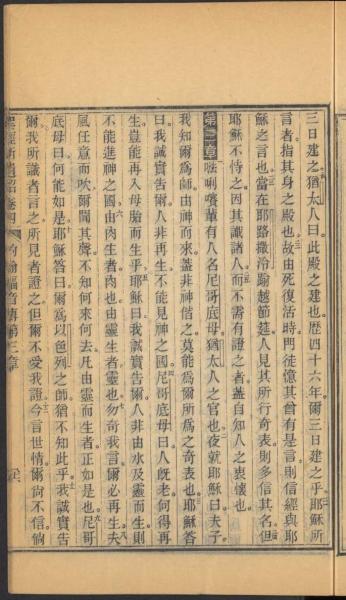 三日建之猶太人曰此殿之建也歷四十六年爾三日建之乎耶穌所
言者指其身之殿也故由死復活時門徒憶其曾有是言則信經與耶
穌之言也當在耶路撒冷踰越節筵人見其所行奇表則多信其名但
耶穌不恃之因其識諸人而不需有證之者蓋自知人之衷懷也
第三章
㕸唎㘔輩有人名尼哥底母猶太人之官也夜就耶穌曰夫子
我知爾爲師由神而來蓋非神偕之莫能爲爾所爲之奇表也耶穌答
曰我誠實告爾人非再生不能見神之國尼哥底母曰人旣老何得再
生豈能再入母胎而生乎耶穌曰我誠實告爾人非由水及靈而生則
不能進神之國由肉生者肉也由靈生者靈也勿奇我言爾必再生夫
風任意而吹爾聞其聲不知何來何去凡由靈而生者正如是也尼哥
底母曰何能如是耶穌答曰爾爲以色列之師猶不知此乎我誠實告
爾我所識者言之所見者證之但爾不愛我證今言世情爾尚不信倘
約翰福音傳第三章